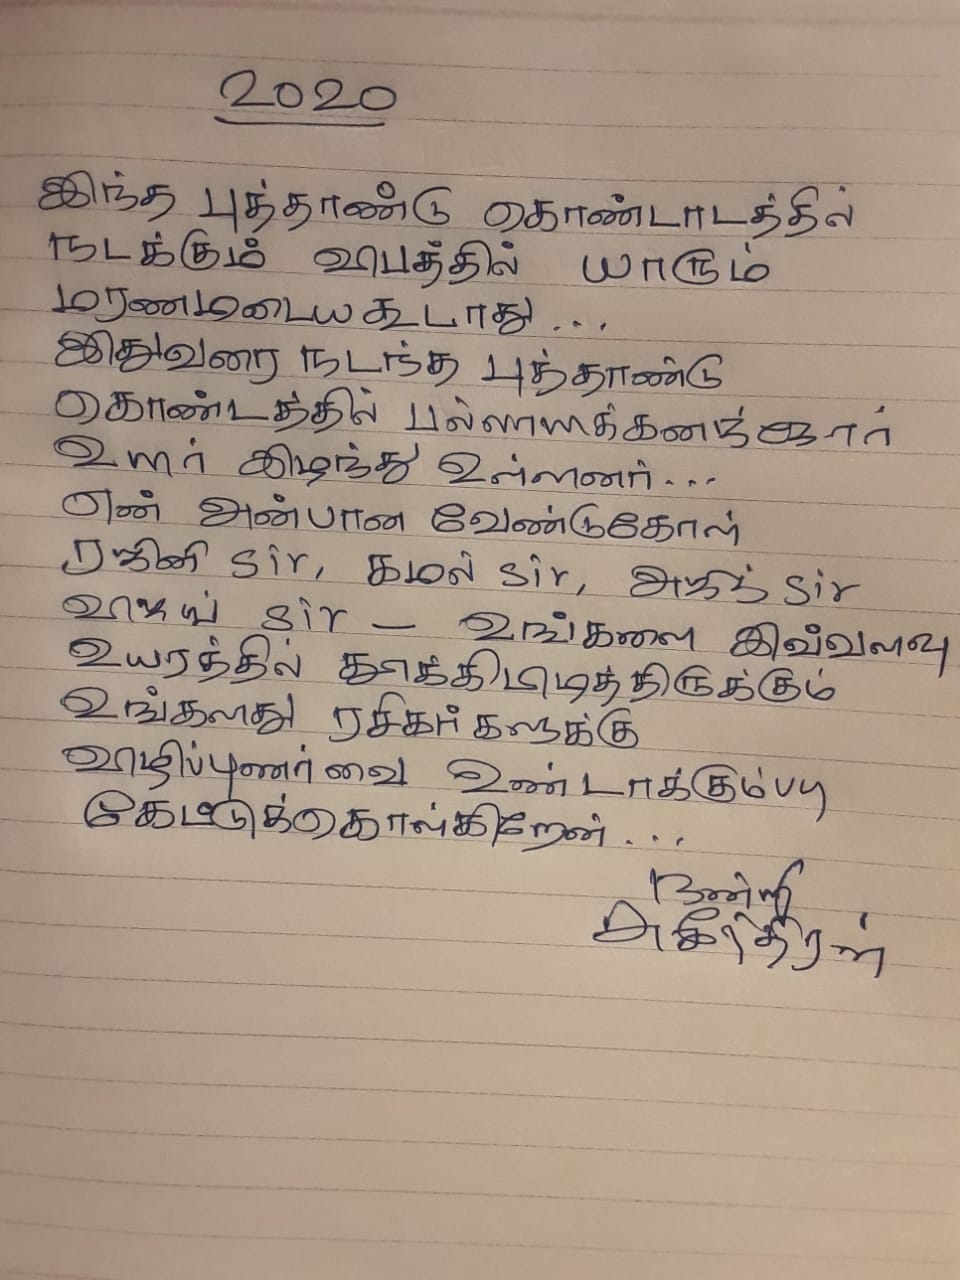 2020
இந்த புத்தாண்டு கொண்டாடத்தில்
நடக்கும் விபத்தில் யாரும்
மரணமடைய கூடாது...
இதுவரை நடந்த புத்தாண்டு
கொண்டத்தில்
உயிர் இழந்து உள்ளனர்...
என் அன்பான வேண்டுகோள்
ரஜினி sir, கமல் sir, அஜித் sir
விஜய் sir – உங்களை இவ்வளவு
உயரத்தில்
உங்களது ரசிகர்களுக்கு
விழிப்புணர்வை உண்டாக்கும்படி
கேட்டுக்கொள்கிறேன்...
நன்றி